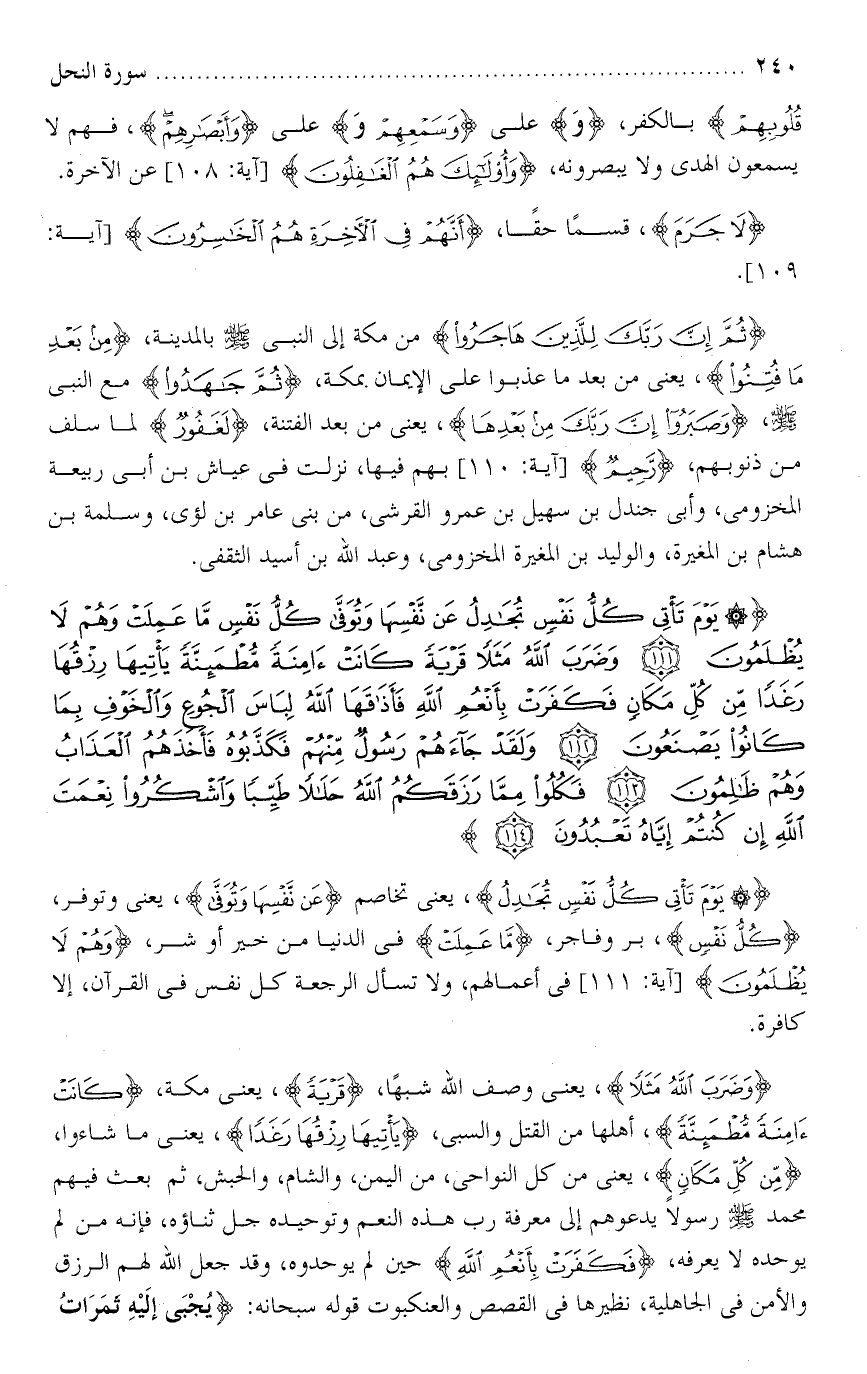 ٢٤٠ ........................................................................ سورة النحل
قُلُوبِهِمْ﴾ بالكفر، ﴿وَ﴾ على ﴿وَسَمْعِهِمْ وَ﴾ على ﴿وَأَبْصَٰرِهِمْ ۖ﴾، فهم لا
يسمعون الهدى ولا يبصرونه، ﴿وَأُوْلَٰٓئِكَ هُمُ ٱلْغَٰفِلُونَ﴾ [آية: ١٠٨] عن الآخرة.
﴿لَا جَرَمَ﴾، قسمًا حقًا، ﴿أَنَّهُمْ فِى ٱلْآخِرَةِ هُمُ ٱلْخَٰسِرُونَ﴾ [آية:
١٠٩].
﴿ثُمَّ إِنَّ رَبَّكَ لِلَّذِينَ هَاجَرُواْ﴾ من مكة إلى النبى ﷺ بالمدينة، ﴿مِنۢ بَعْدِ
مَا فُتِنُواْ﴾، يعنى من بعد ما عذبوا على الإيمان بمكة، ﴿ثُمَّ جَٰهَدُواْ﴾ مع النبى
ﷺ، ﴿وَصَبَرُوٓاْ إِنَّ رَبَّكَ مِنۢ بَعْدِهَا﴾، يعنى من بعد الفتنة، ﴿لَغَفُورٌ﴾ لما سلف
من ذنوبهم، ﴿رَّحِيمٌ﴾ [آية: ١١٠] بهم فيها، نزلت فى عياش بن أبى ربيعة
المخزومى، وأبى جندل بن سهيل بن عمرو القرشى، من بنى عامر بن لؤى، وسلمة بن
هشام بن المغيرة، والوليد بن المغيرة المخزومى، وعبد الله بن أسيد الثقفى.
﴿۞ يَوْمَ تَأْتِى كُلُّ نَفْسٍ تُجَٰدِلُ عَن نَّفْسِهَا وَتُوَفَّىٰ كُلُّ نَفْسٍ مَّا عَمِلَتْ وَهُمْ لَا
يُظْلَمُونَ ١١١ وَضَرَبَ ٱللَّهُ مَثَلًا قَرْيَةً كَانَتْ ءَامِنَةً مُّطْمَئِنَّةً يَأْتِيهَا رِزْقُهَا
رَغَدًا مِّن كُلِّ مَكَانٍ فَكَفَرَتْ بِأَنْعُمِ ٱللَّهِ فَأَذَٰقَهَا ٱللَّهُ لِبَاسَ ٱلْجُوعِ وَٱلْخَوْفِ بِمَا
كَانُواْ يَصْنَعُونَ ١١٢ وَلَقَدْ جَآءَهُمْ رَسُولٌ مِّنْهُمْ فَكَذَّبُوهُ فَأَخَذَهُمُ ٱلْعَذَابُ
وَهُمْ ظَٰلِمُونَ ١١٣ فَكُلُواْ مِمَّا رَزَقَكُمُ ٱللَّهُ حَلَٰلًا طَيِّبًا وَٱشْكُرُواْ نِعْمَتَ
ٱللَّهِ إِن كُنتُمْ إِيَّاهُ تَعْبُدُونَ ١١٤ ﴾
﴿۞ يَوْمَ تَأْتِى كُلُّ نَفْسٍ تُجَٰدِلُ﴾، يعنى تخاصم ﴿عَن نَّفْسِهَا وَتُوَفَّىٰ﴾، يعنى وتوفر،
﴿كُلُّ نَفْسٍ﴾، بر وفاجر، ﴿مَّا عَمِلَتْ﴾ فى الدنيا من خير أو شر، ﴿وَهُمْ لَا
يُظْلَمُونَ﴾ [آية: ١١١] فى أعمالهم، ولا تسأل الرجعة كل نفس فى القرآن، إلا
كافرة.
﴿وَضَرَبَ ٱللَّهُ مَثَلًا﴾، يعنى وصف الله شبهًا، ﴿قَرْيَةً﴾، يعنى مكة، ﴿كَانَتْ
ءَامِنَةً مُّطْمَئِنَّةً﴾، أهلها من القتل والسبى، ﴿يَأْتِيهَا رِزْقُهَا رَغَدًا﴾، يعنى ما شاءوا،
﴿مِّن كُلِّ مَكَانٍ﴾، يعنى من كل النواحى، من اليمن، والشام، والحبش، ثم بعث فيهم
محمد ﷺ رسولاً يدعوهم إلى معرفة رب هذه النعم وتوحيده جل ثناؤه، فإنه من لم
يوحده لا يعرفه، ﴿فَكَفَرَتْ بِأَنْعُمِ ٱللَّهِ﴾ حين لم يوحدوه، وقد جعل الله لهم الرزق
والأمن فى الجاهلية، نظيرها فى القصص والعنكبوت قوله سبحانه: ﴿يُجْبَى إِلَيْهِ ثَمَرَاتُ